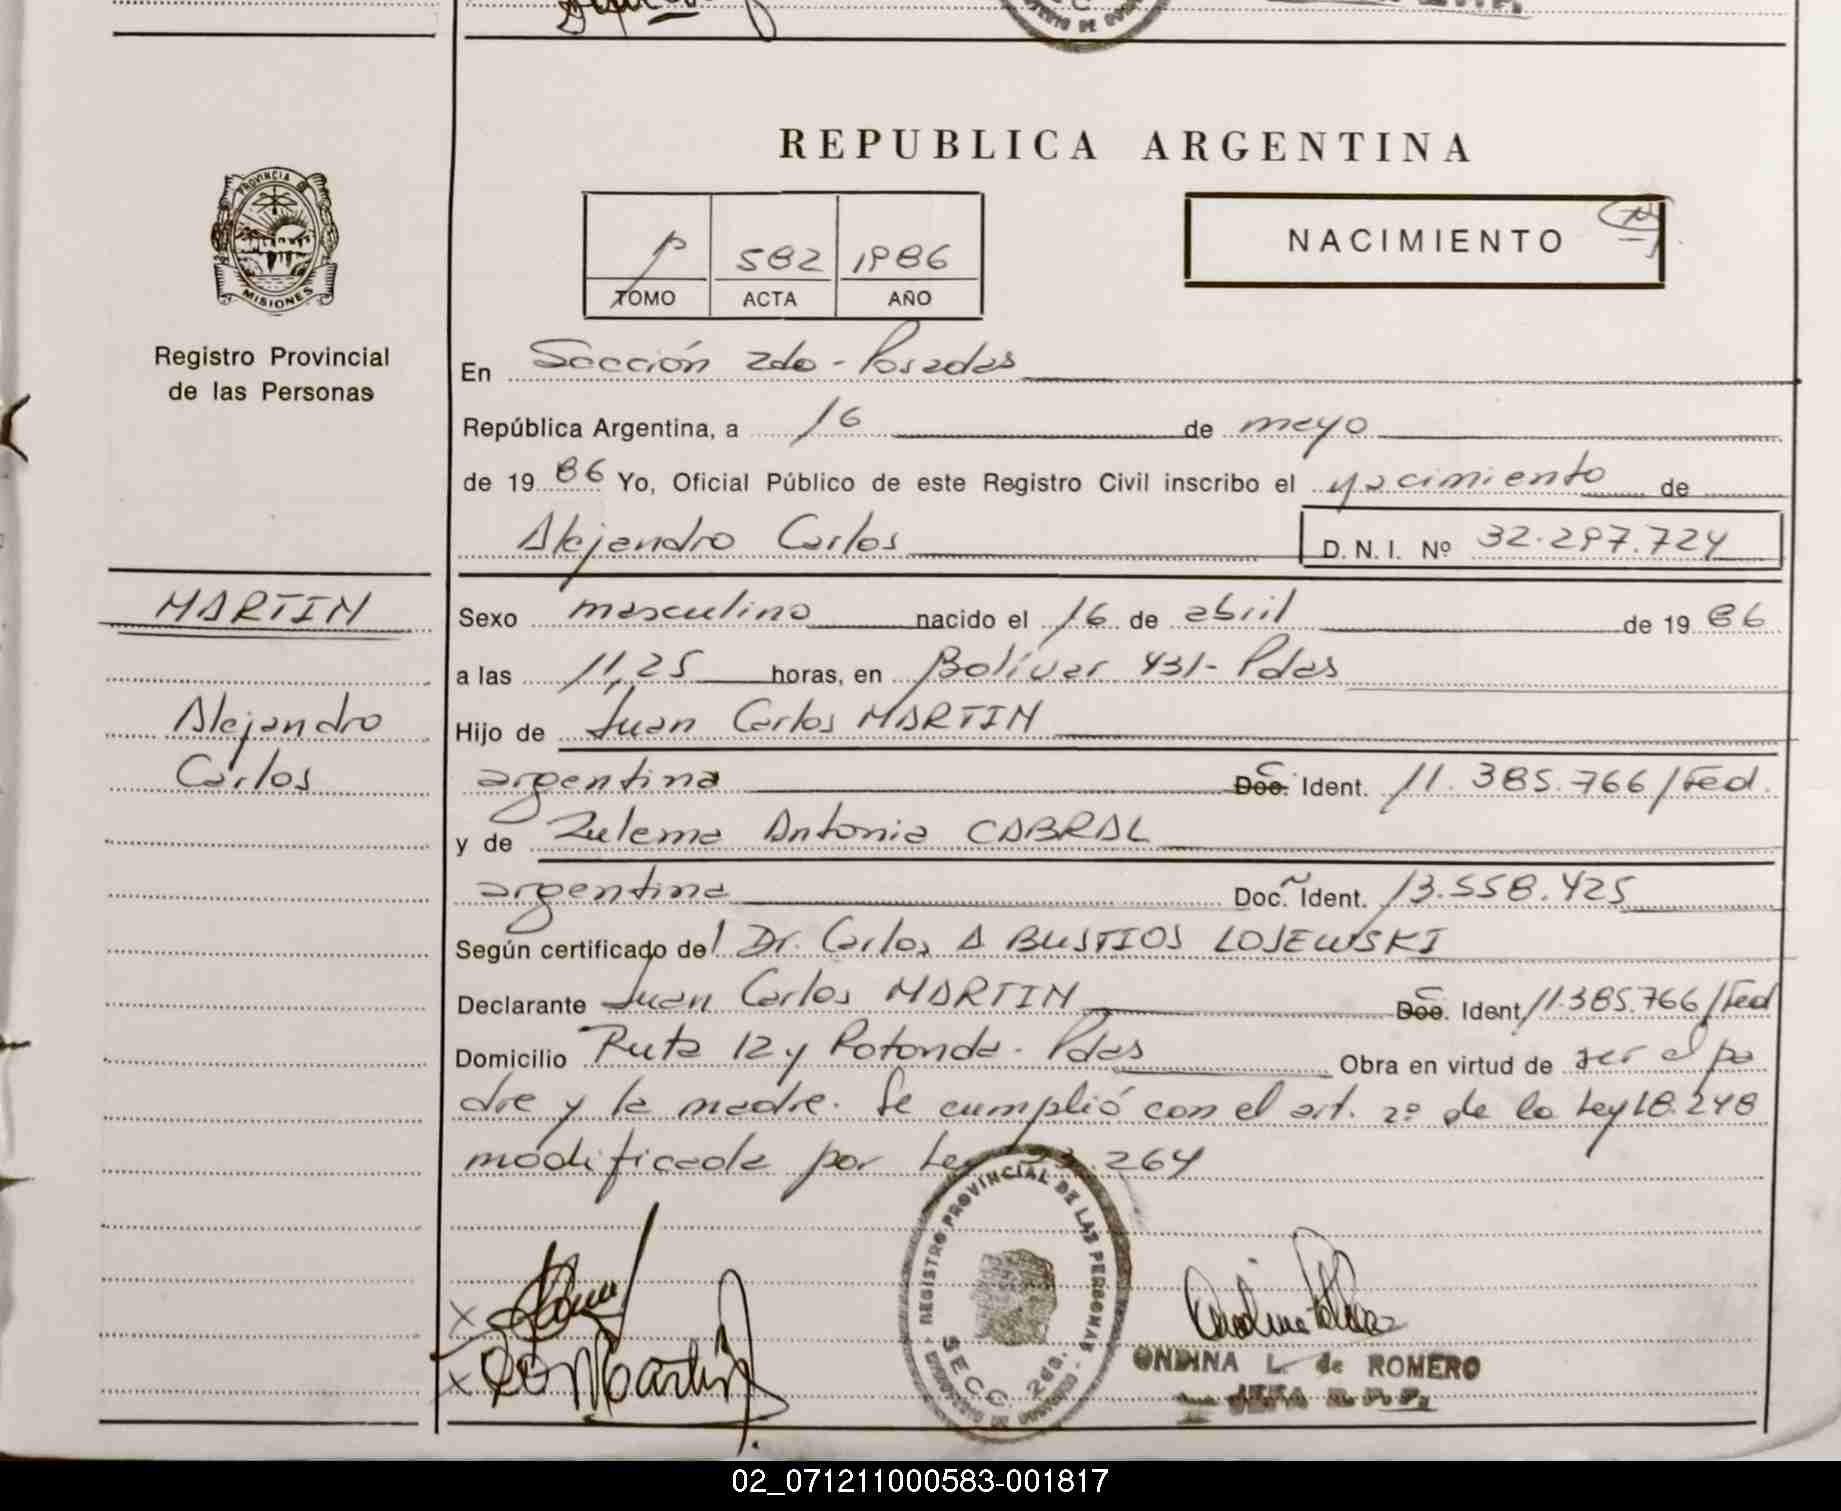 REPUBLICA ARGENTINA
PROVINCIA DE
MISIONES
Registro Provincial
de las Personas
NACIMIENTO
582 1986
TOMO ACTA AÑO
En Sección 2do - Posadas
República Argentina, a 16 de mayo
de 1986 Yo, Oficial Público de este Registro Civil inscribo el nacimiento de
Alejandro Carlos D.N.I. Nº 32.297.724
MARTIN
Alejandro
Carlos
Sexo masculino nacido el 16 de abril de 1986
a las 11,25 horas, en Bolívar 431- Pdas
Hijo de Juan Carlos MARTIN
argentina Doc. C. Ident. 11.385.766/Fed.
y de Zulema Antonia CABRAL
argentina Doc. Ident. 13.558.425
Según certificado del Dr. Carlos A BUSTIOS LOSEWSKI
Declarante Juan Carlos MARTIN Doc. C. Ident. 11.385.766/Fed
Domicilio Ruta 12 y Rotonda - Pdas Obra en virtud de ser el pa
dre y la madre. Se cumplió con el art. 2º de la Ley 18.248
modificada por Ley 23.264
REGISTRO PROVINCIAL DE LAS PERSONAS
SECC. 2da.
x
x Martin
ONDINA L. de ROMERO
JEFA R.P.P.
02_071211000583-001817